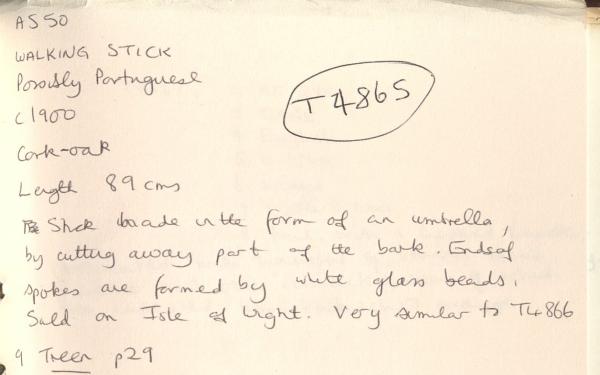 AS50
WALKING STICK
Possibly Portuguese
c1900
T4865
Cork-oak
Length 89 cms
Stick made in the form of an umbrella,
by cutting away part of the bark. Ends of
spokes are formed by white glass beads.
Sold on Isle of Wight. Very similar to T4866
9 Treen p29